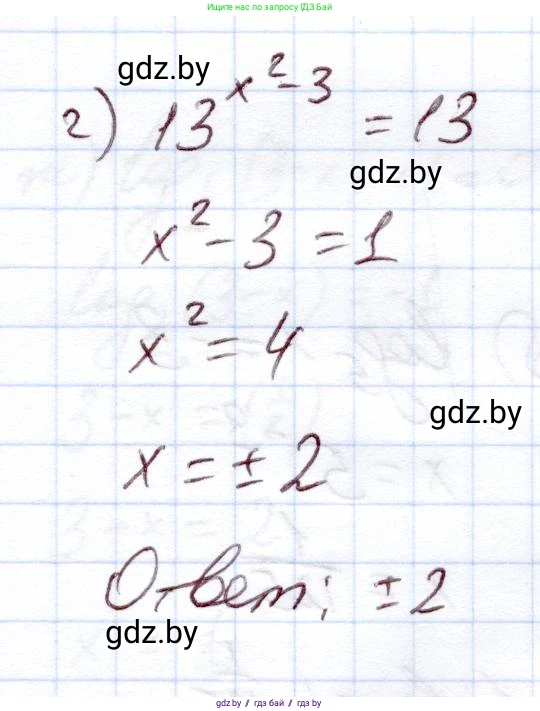 Ищите нас по запросу ГДЗ Бай
gdz.by
г) 13^(x²-3) = 13
gdz.by
x² - 3 = 1
x² = 4
gdz.by
x = ± 2
Ответ: ± 2
gdz.by
gdz.by / гдз бай / gdz.by